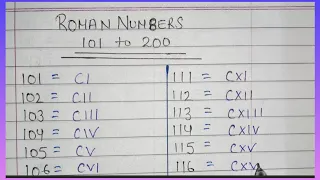 ROMAN NUMBERS
101 to 200
101 = CI
102 = CII
103 = CIII
104 = CIV
105 = CV
106 = CVI
111 = CXI
112 = CXII
113 = CXIII
114 = CXIV
115 = CXV
116 = CXV